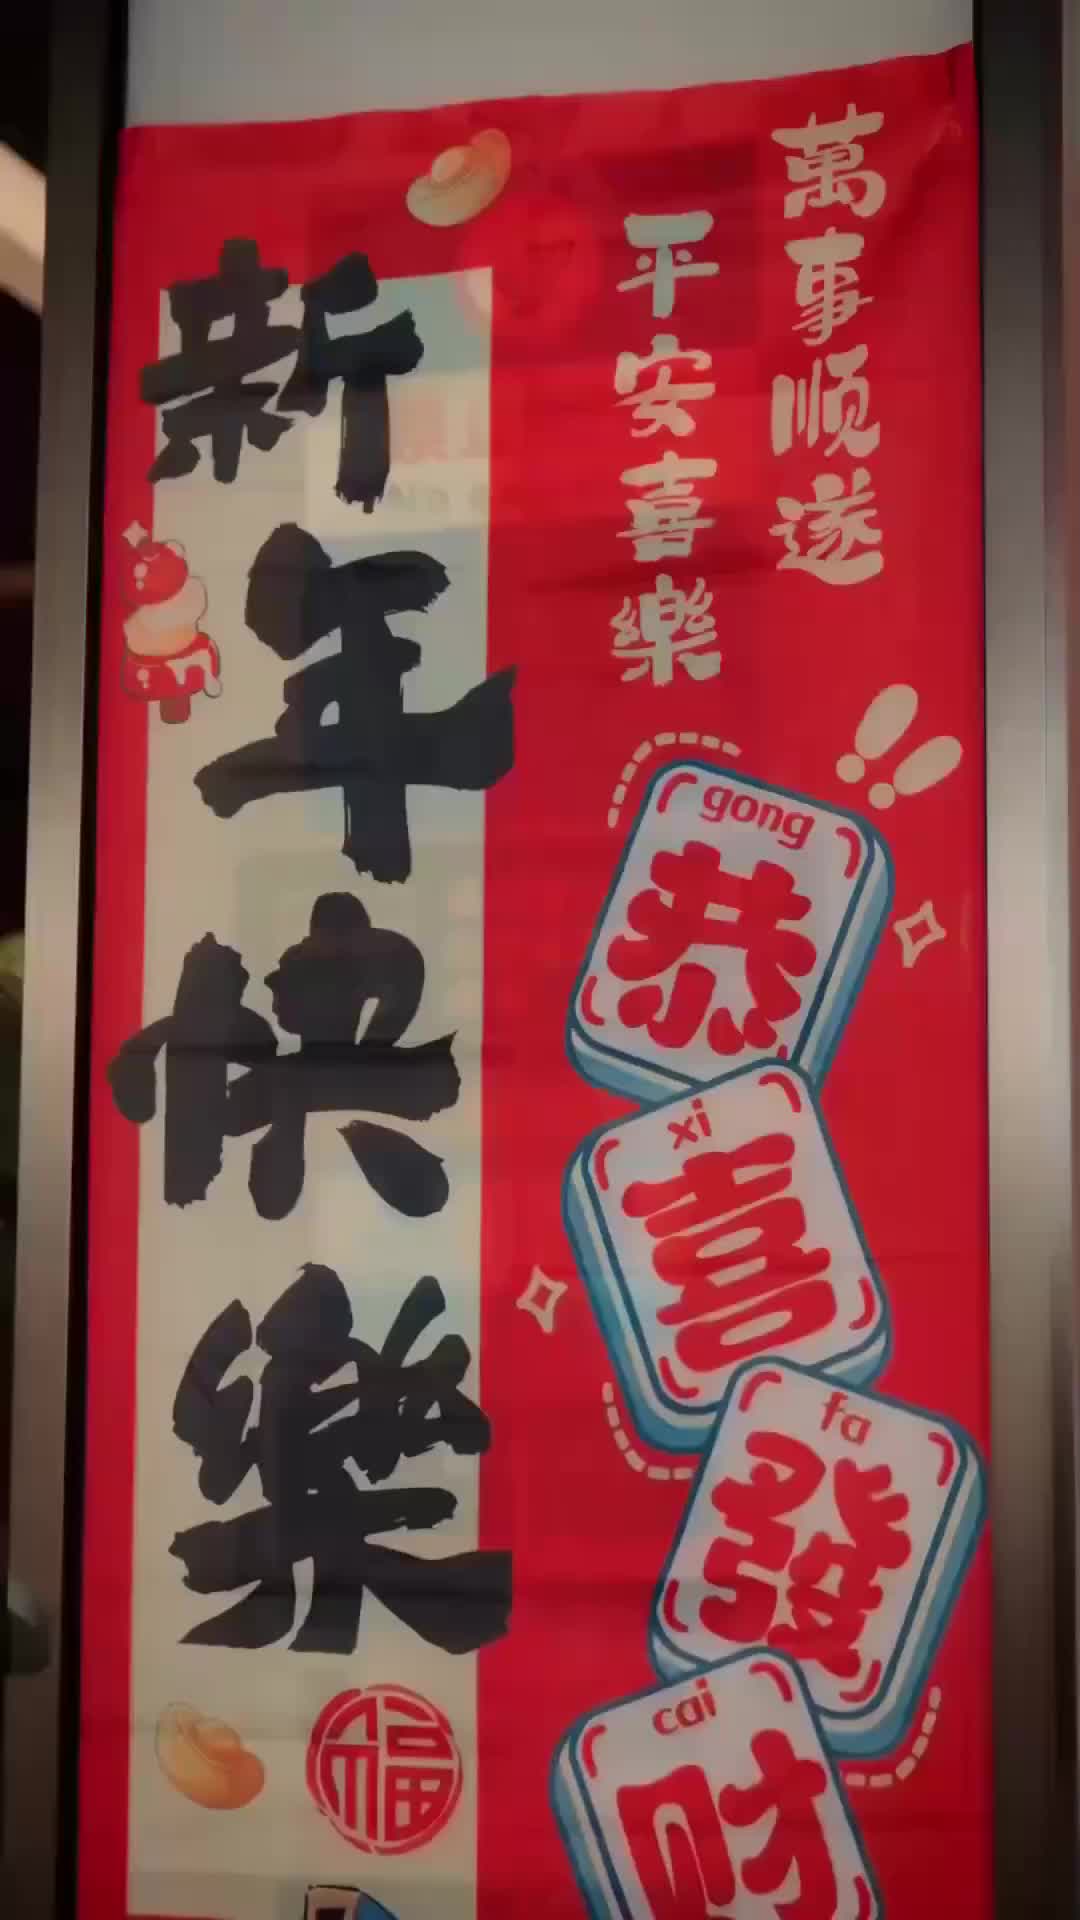 萬事顺遂
平安喜樂
新年快樂
gong
恭
xi
喜
fa
發
cai
财
福